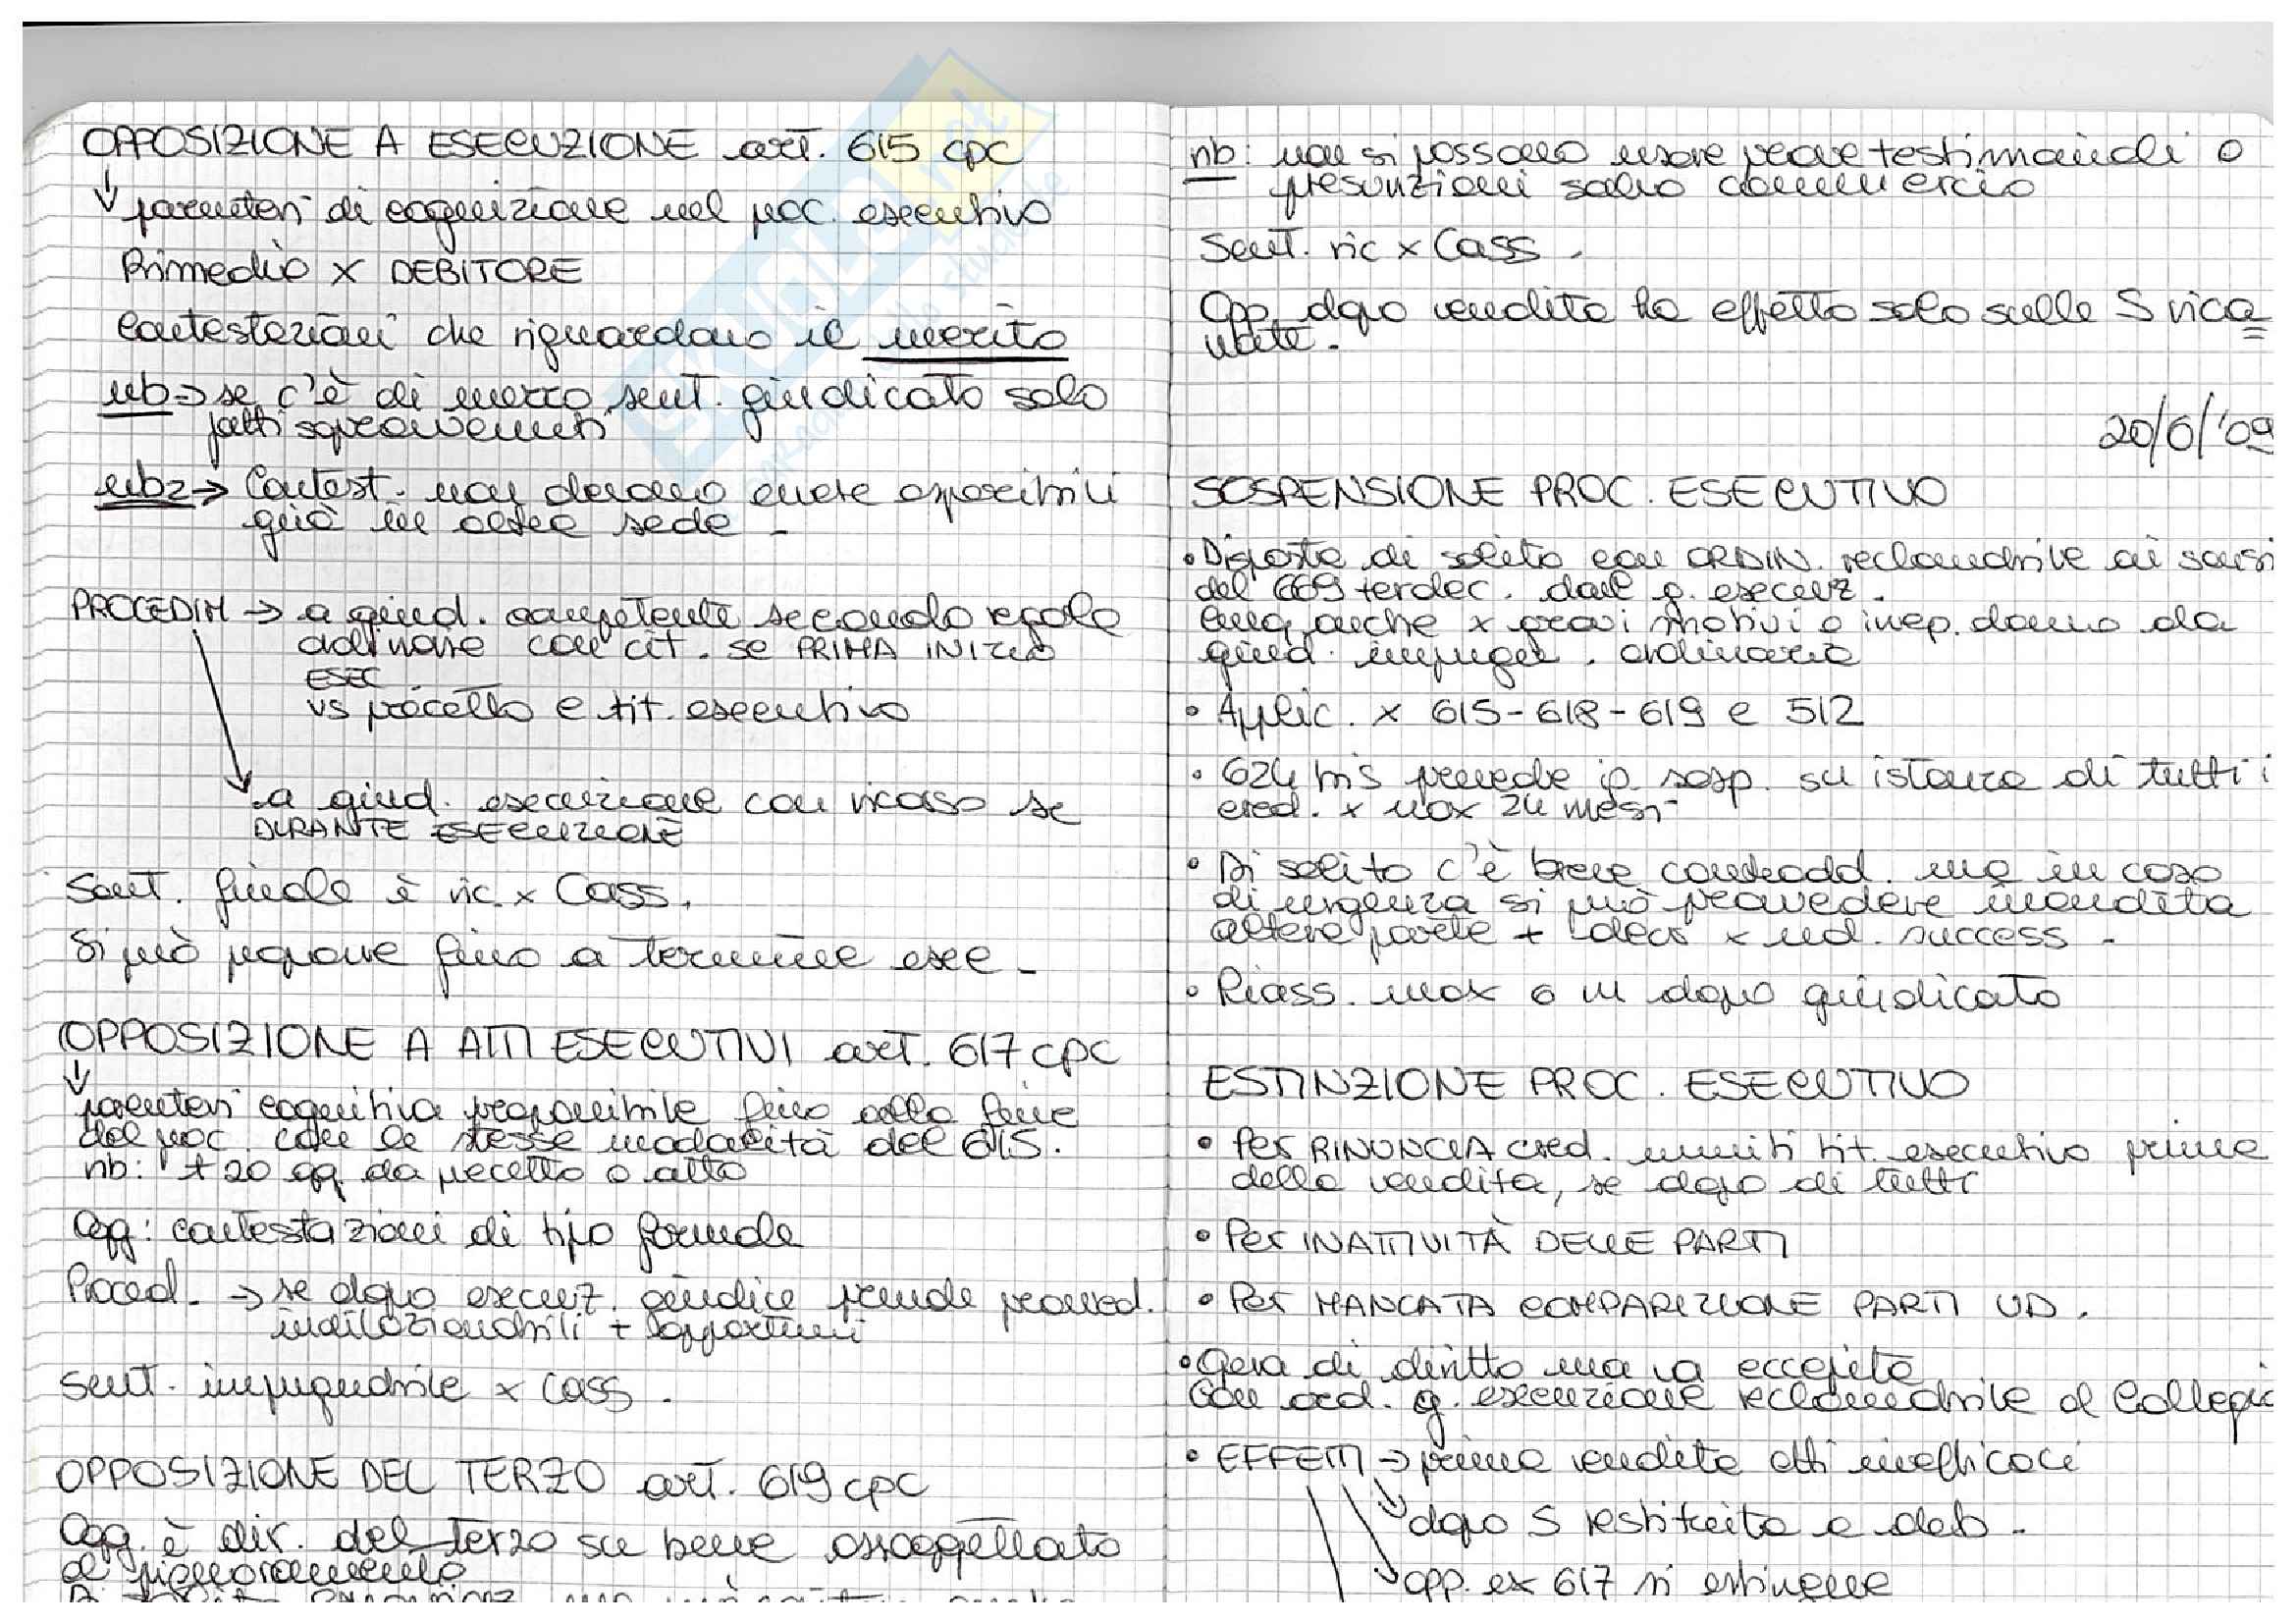 OPPOSIZIONE A ESECUZIONE art. 615 cpc
↓ parentesi di cognizione nel proc. esecutivo
Rimedio x DEBITORE
Contestazioni che riguardano il merito
nb → se c'è di mezzo sent. giudicato solo
fatti sopravvenuti
nb2 → Contest. non devono essere esperibili
già in altra sede.
PROCEDIM → a giud. competente secondo regole
ordinarie con cit. se PRIMA INIZIO
ESEC.
vs precetto e tit. esecutivo
a giud. esecuzione con ricorso se
DURANTE ESECUZIONE
Sent. finale è ric. x Cass.
Si può proporre fino a termine esec.
OPPOSIZIONE A ATTI ESECUTIVI art. 617 cpc
↓
parentesi cognitiva proponibile fino alla fine
del proc. con le stesse modalità del 615.
nb: + 20 gg. da precetto o atto
Ogg: contestazioni di tipo formale
Proced. → se dopo esecuz. giudice prende provved.
indilazionabili + opportuni
Sent. impugnabile x Cass.
OPPOSIZIONE DEL TERZO art. 619 cpc
Ogg. è dir. del terzo su bene assoggettato
a pignoramento
nb: non si possono usare prove testimoniali o
presunzioni salvo commercio
Sent. ric x Cass.
Opp. dopo vendita ha effetto solo sulle S rica
vate.
20/6/'09
SOSPENSIONE PROC. ESECUTIVO
• Disposta di solito con ORDIN. reclamabile ai sensi
del 669 terdec. dal g. esecuz.
anche x gravi motivi o irrep. danno da
giud. impugn. ordinario
• Applic. x 615-618-619 e 512
• 624 bis prevede ip. sosp. su istanza di tutti i
cred. x max 24 mesi
• Di solito c'è breve contradd. ma in caso
di urgenza si può provvedere inaudita
altera parte + decr x ud. success.
• Riass. max 6 m dopo giudicato
ESTINZIONE PROC. ESECUTIVO
• Per RINUNCIA cred. muniti tit. esecutivo prima
della vendita, se dopo di tutti
• Per INATTIVITÀ DELLE PARTI
• Per MANCATA COMPARIZIONE PARTI UD.
• Opera di diritto ma va eccepita
Con ord. g. esecuzione reclamabile al Collegio
• EFFETTI → prima vendita atti inefficaci
dopo S restituita a deb.
opp. ex 617 si estingue